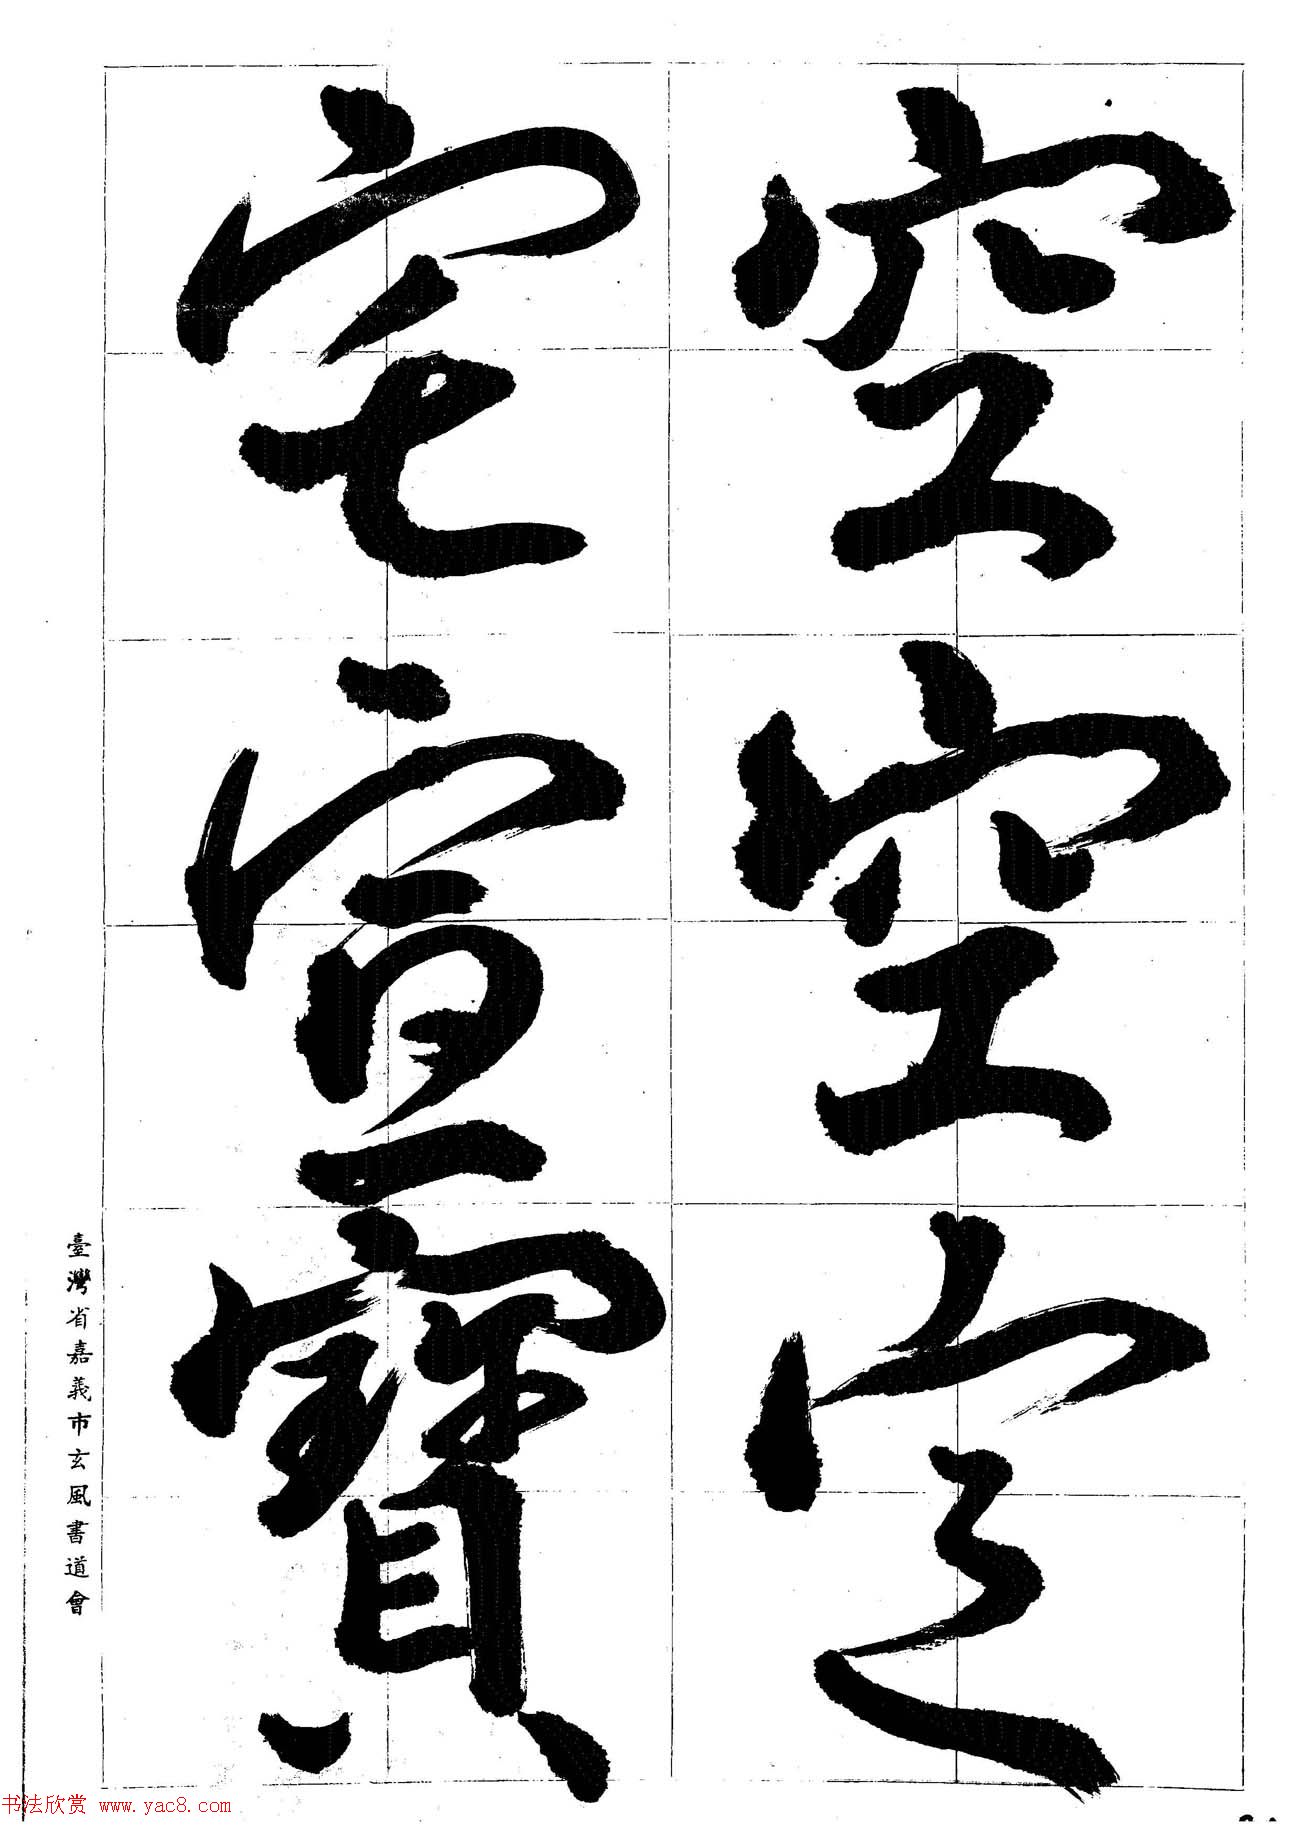 空空定
宅宣寶
臺灣省嘉義市玄風書道會
书法欣赏 www.yac8.com